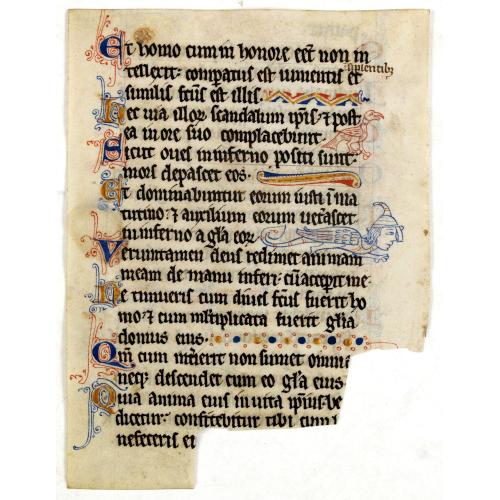 Et homo cum in honore eēt non in
sipientibȝ
tellexit: comparatus est iumentis et
similis fcūs est illis.
Hec uia illoꝝ scandalum ipis ⁊ post
ea in ore suo complacebunt
Sicut oues in inferno positi sunt:
mors depascet eos.
Et dominabuntur eorum iusti ī ma
tutino: ⁊ auxilium eorum ueťascet
in inferno a gl̄a eoꝝ
Verumtamen deus redimet animam
meam de manu inferi: cū acceperit me
Ne timueris cum diues fcūs fuerit ho
mo: ⁊ cum multiplicata fuerit gl̄ia
domus eius.
Qm̄ cum interierit non sumet omnia
neqꝫ descendet cum eo gl̄a eius
Quia anima eius in uita ipsius be
dicetur: confitebitur tibi cum
nefeceris ei